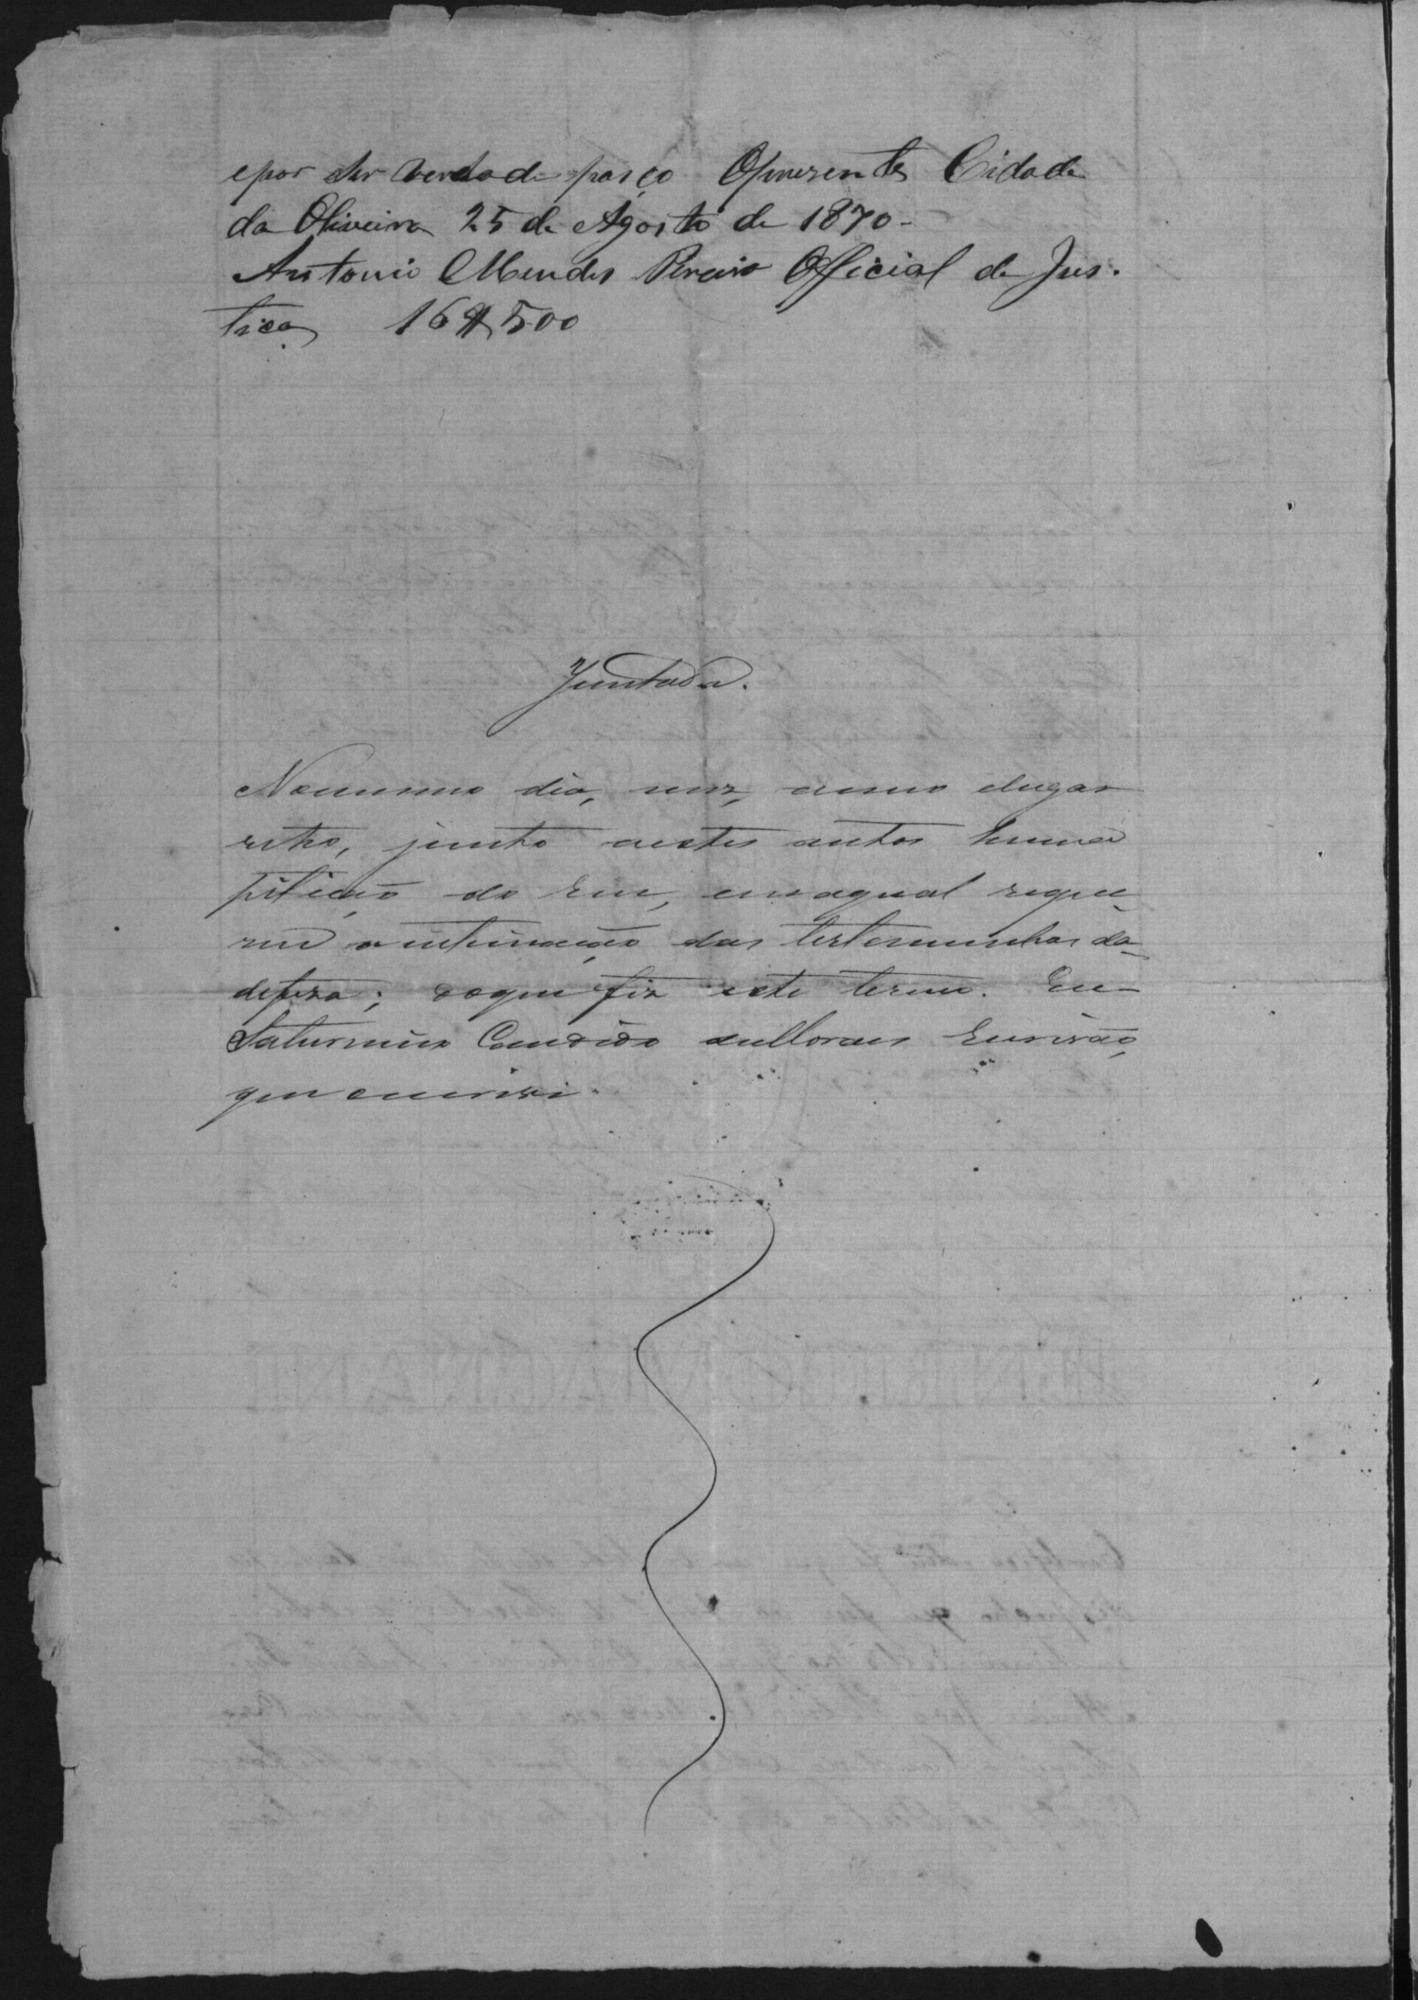 epor ser verdade parço Opresente Cidade
da Oliveira 25 de Agosto de 1870-
Antonio Mendes Pereira Official de Jus-
tiça 16$500
Juntada.
Nomesmo dia, mez, anno elugar
retro, junto aestes autos huma
petição do Reu, emaqual reque-
reu aintimação das testemunhas da
defeza; doque fiz este termo. Eu
Saturnino Candido Escrivão,
que escrevi.